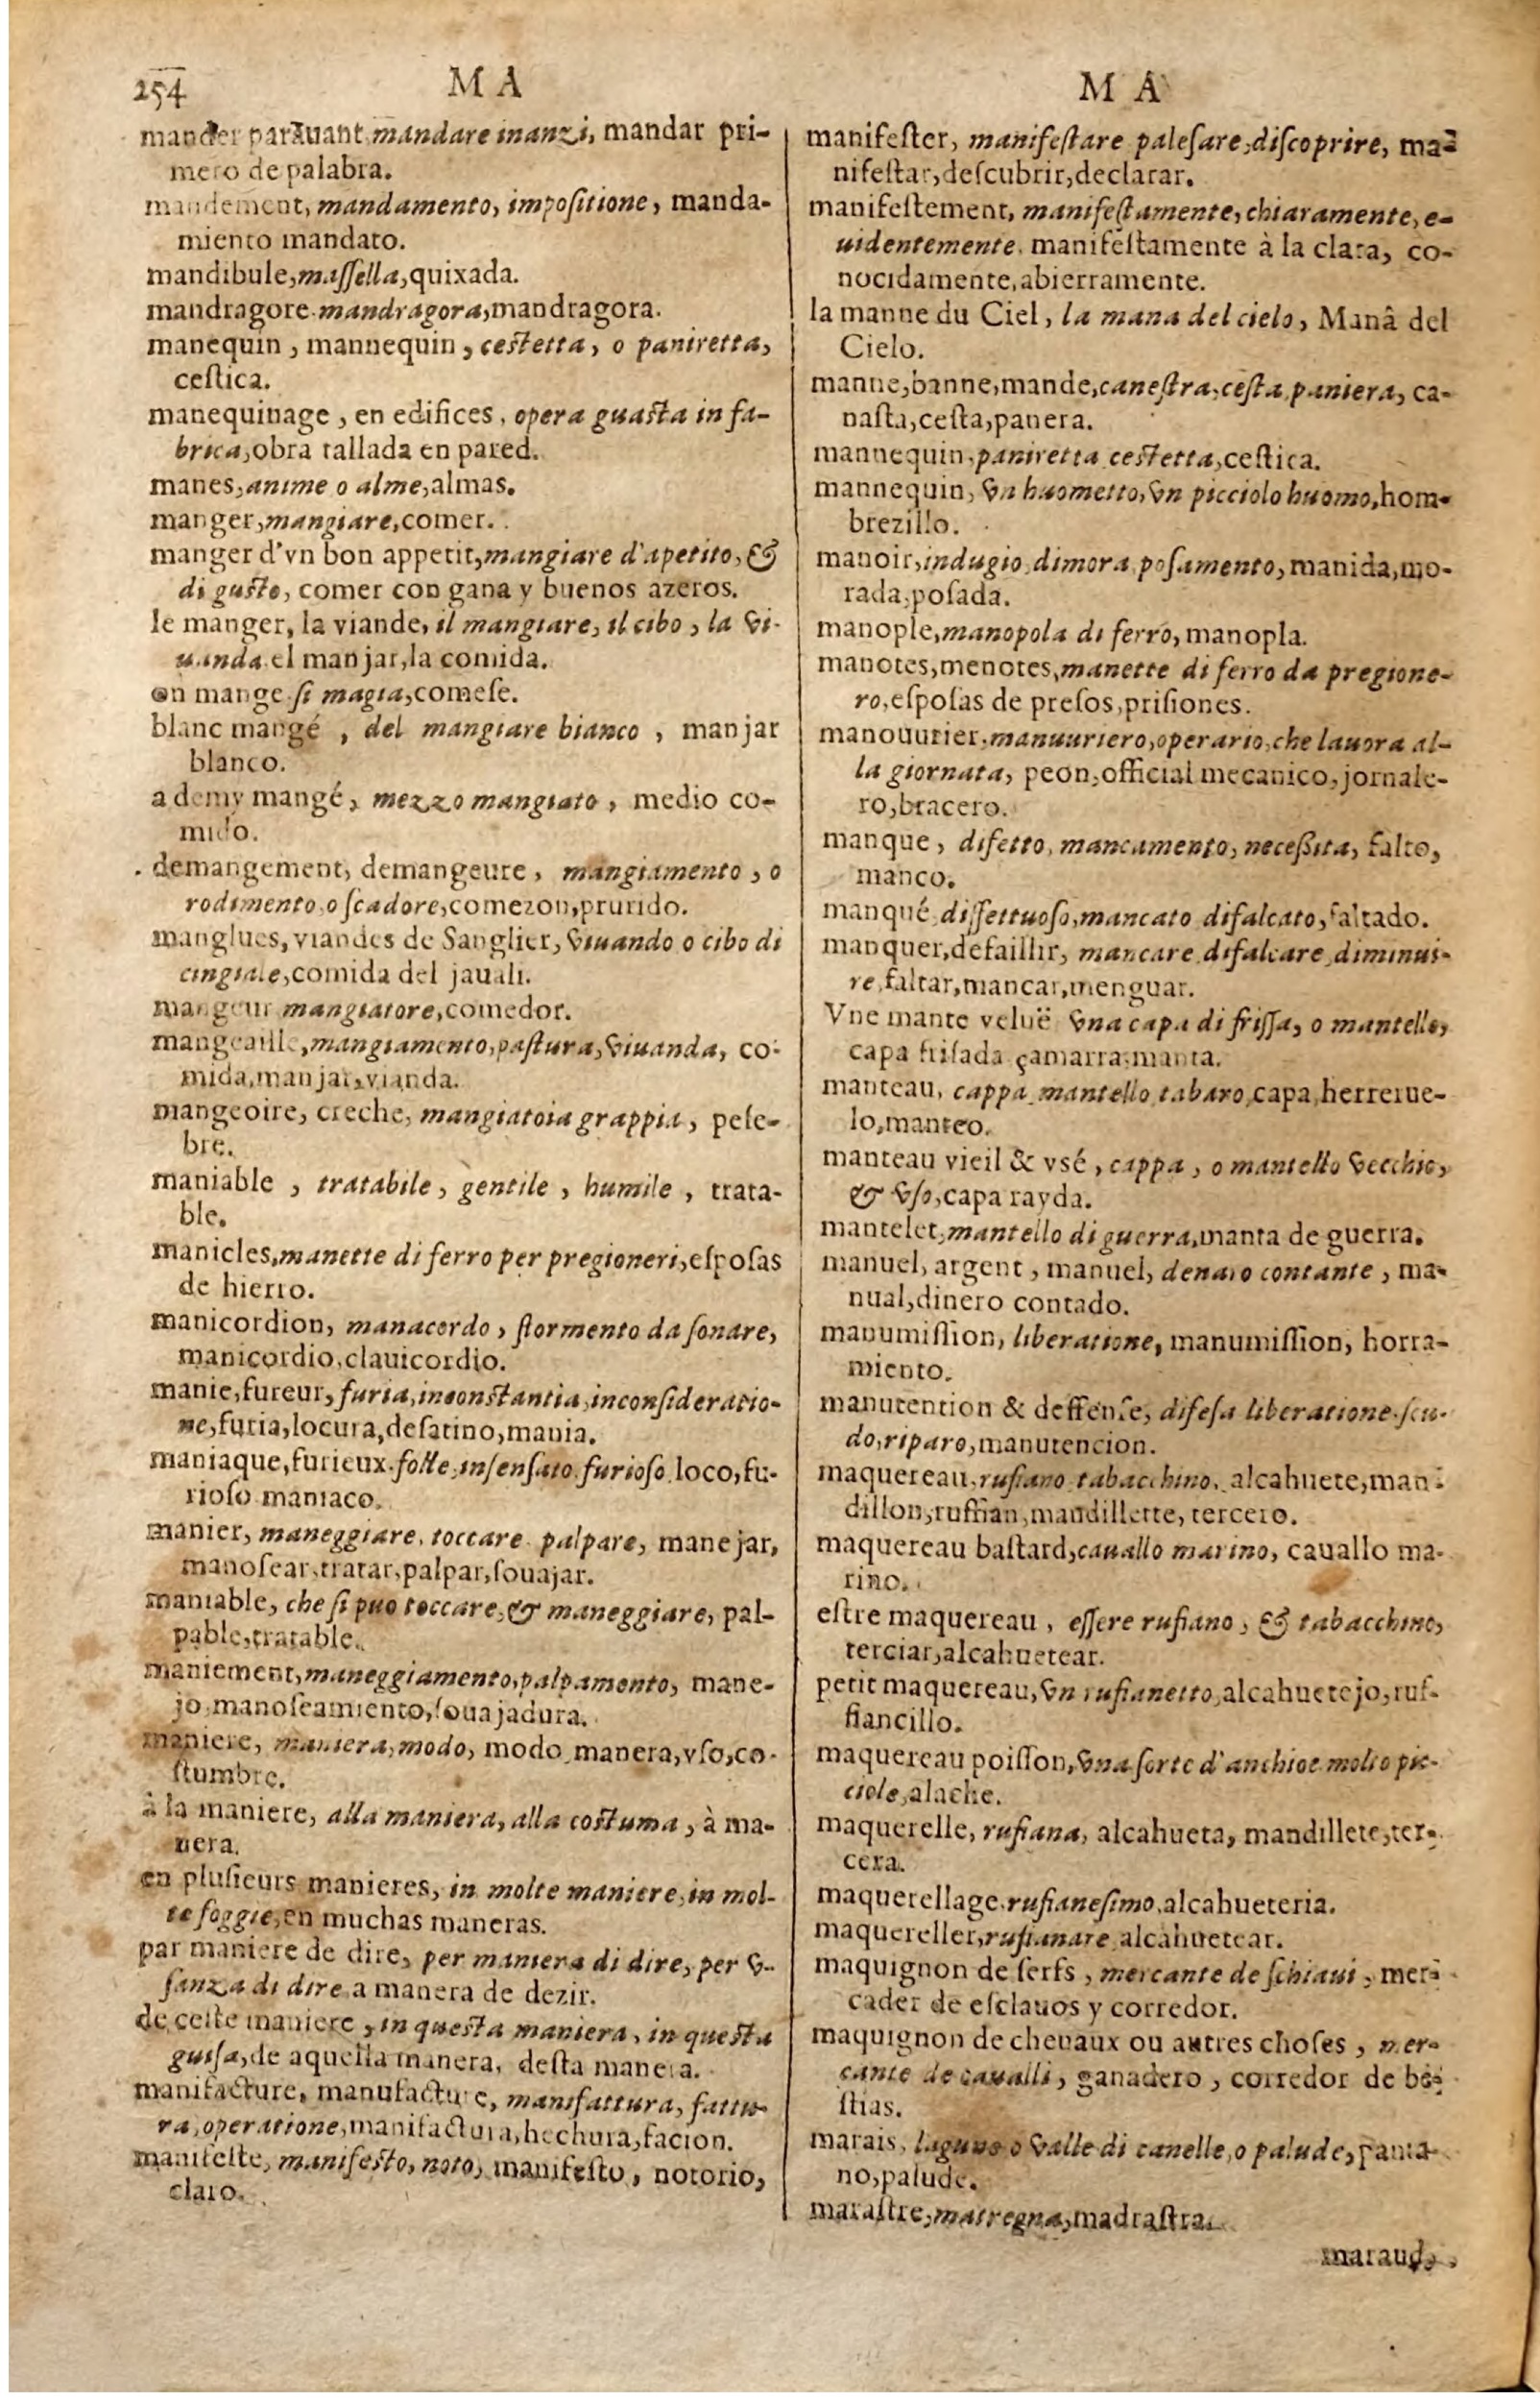 254
M A
mander parauant mandare inanzi, mandar pri-
mero de palabra.
mandement, mandamento, impoſitione, manda-
miento mandato.
mandibule, maſſella, quixada.
mandragore. mandragora, mandragora.
manequin, mannequin, ceſtetta, o paniretta,
ceſtica.
manequinage, en edifices, opera guaſta in fa-
brica, obra tallada en pared.
manes, anime o alme, almas.
manger, mangiare, comer.
manger d'vn bon appetit, mangiare d'apetito, &
di guſto, comer con gana y buenos azeros.
le manger, la viande, il mangiare, il cibo, la vi-
uanda el manjar, la comida.
on mange ſi magia, comeſe.
blanc mangé, del mangiare bianco, manjar
blanco.
a demy mangé, mezzo mangiato, medio co-
mido.
demangement, demangeure, mangiamento, o
rodimento o ſcadore, comezon, prurido.
manglues, viandes de Sanglier, viuando o cibo di
cingiale, comida del jauali.
mangeur mangiatore, comedor.
mangeaille, mangiamento, paſtura, viuanda, co-
mida, manjar, vianda.
mangeoire, creche, mangiatoia grappia, peſe-
bre.
maniable, tratabile, gentile, humile, trata-
ble.
manicles, manette di ferro per pregioneri, eſpoſas
de hierro.
manicordion, manacordo, ſtormento da ſonare,
manicordio, clauicordio.
manie, fureur, furia, inconſtantia, inconſideratio-
ne, furia, locura, deſatino, mania.
maniaque, furieux. folle, inſenſato furioſo loco, fu-
rioſo maniaco.
manier, maneggiare, toccare palpare, manejar,
manoſear, tratar, palpar, ſouajar.
maniable, che ſi puo toccare, & maneggiare, pal-
pable, tratable.
maniement, maneggiamento, palpamento, mane-
jo, manoſeamiento, ſouajadura.
maniere, maniera, modo, modo, manera, vſo, co-
ſtumbre.
à la maniere, alla maniera, alla coſtuma, à ma-
nera.
en pluſieurs manieres, in molte maniere, in mol-
te foggie, en muchas maneras.
par maniere de dire, per maniera di dire, per v-
ſanza di dire a manera de dezir.
de ceſte maniere, in queſta maniera, in queſta
guiſa, de aquella manera, deſta manera.
manifacture, manufacture, manifattura, fattu-
ra, operatione, manifactura, hechura, facion.
manifeſte, manifeſto, noto, manifeſto, notorio,
claro.
M A
manifeſter, manifeſtare paleſare, diſcoprire, ma-
nifeſtar, deſcubrir, declarar.
manifeſtement, manifeſtamente, chiaramente, e-
uidentemente. manifeſtamente à la clara, co-
nocidamente, abierramente.
la manne du Ciel, la mana del cielo, Manâ del
Cielo.
manne, banne, mande, caneſtra, ceſta paniera, ca-
naſta, ceſta, panera.
mannequin, paniretta ceſtetta, ceſtica.
mannequin, vn huometto, vn picciolo huomo, hom-
brezillo.
manoir, indugio, dimora poſamento, manida, mo-
rada, poſada.
manople, manopola di ferro, manopla.
manotes, menotes, manette di ferro da pregione-
ro, eſpoſas de preſos, priſiones.
manouurier, manuuriero, operario, che lauora al-
la giornata, peon, official mecanico, jornale-
ro, bracero.
manque, difetto, mancamento, neceſsita, falto,
manco.
manqué diffettuoſo, mancato difalcato, faltado.
manquer, defaillir, mancare difalcare diminui-
re, faltar, mancar, menguar.
Vne mante veluë vna capa di friſſa, o mantello,
capa friſada çamarra, manta.
manteau, cappa mantello tabaro capa herrerue-
lo, manteo.
manteau vieil & vsé, cappa, o mantello vecchio,
& vſo, capa rayda.
mantelet, mantello di guerra, manta de guerra.
manuel, argent, manuel, denaro contante, ma-
nual, dinero contado.
manumiſſion, liberatione, manumiſſion, horra-
miento.
manutention & deffenſe, difeſa liberatione. ſcu-
do, riparo, manutencion.
maquereau, rufiano tabacchino, alcahuete, man-
dillon, ruffian, mandillette, tercero.
maquereau baſtard, cauallo marino, cauallo ma-
rino.
eſtre maquereau, eſſere rufiano, & tabacchino,
terciar, alcahuetear.
petit maquereau, vn rufianetto, alcahuetejo, ruf-
fiancillo.
maquereau poiſſon, vna ſorte d'anchioe molto pic-
ciole, alache.
maquerelle, rufiana, alcahueta, mandillete, ter-
cera.
maquerellage. rufianeſimo, alcahueteria.
maquereller, rufianare alcahuetear.
maquignon de ſerfs, mercante de ſchiaui, mer-
cader de eſclauos y corredor.
maquignon de cheuaux ou autres choſes, mer-
cante de caualli, ganadero, corredor de be-
ſtias.
marais, laguno o valle di canelle, o palude, panta-
no, palude.
maraſtre, matregna, madraſtra.
maraud,